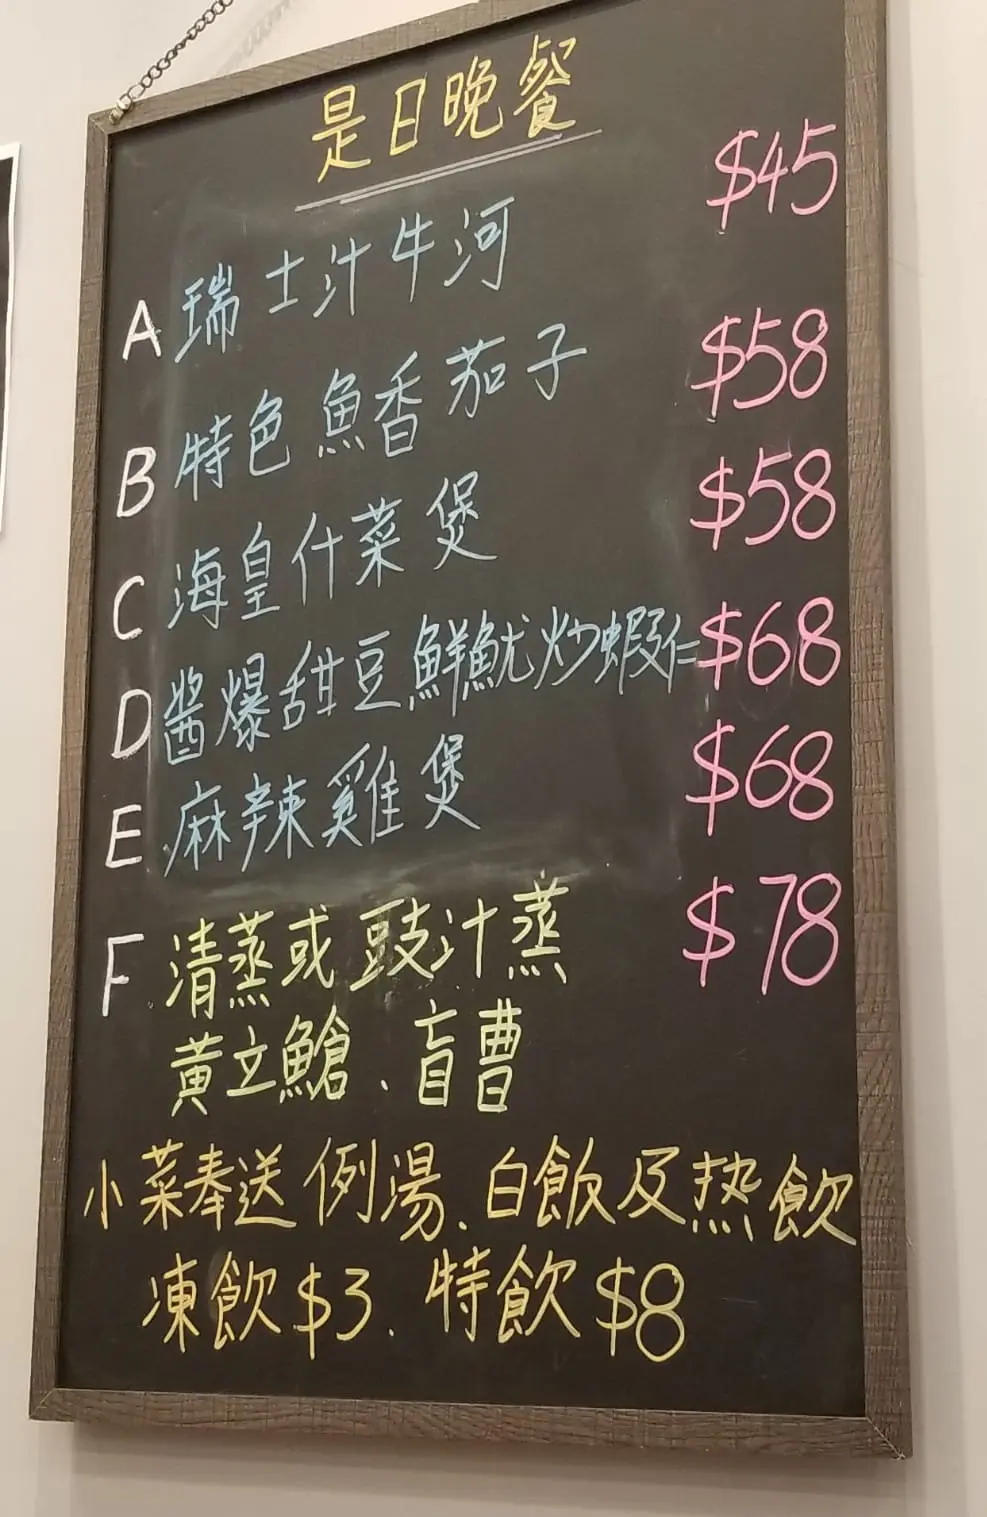 是日晚餐
A 瑞士汁牛河 $45
B 特色魚香茄子 $58
C 海皇什菜煲 $58
D 醬爆甜豆鮮魷炒蝦仁 $68
E 麻辣雞煲 $68
F 清蒸或豉汁蒸 $78
黃立鯧、盲曹
小菜奉送例湯、白飯及热飲
凍飲$3、特飲$8